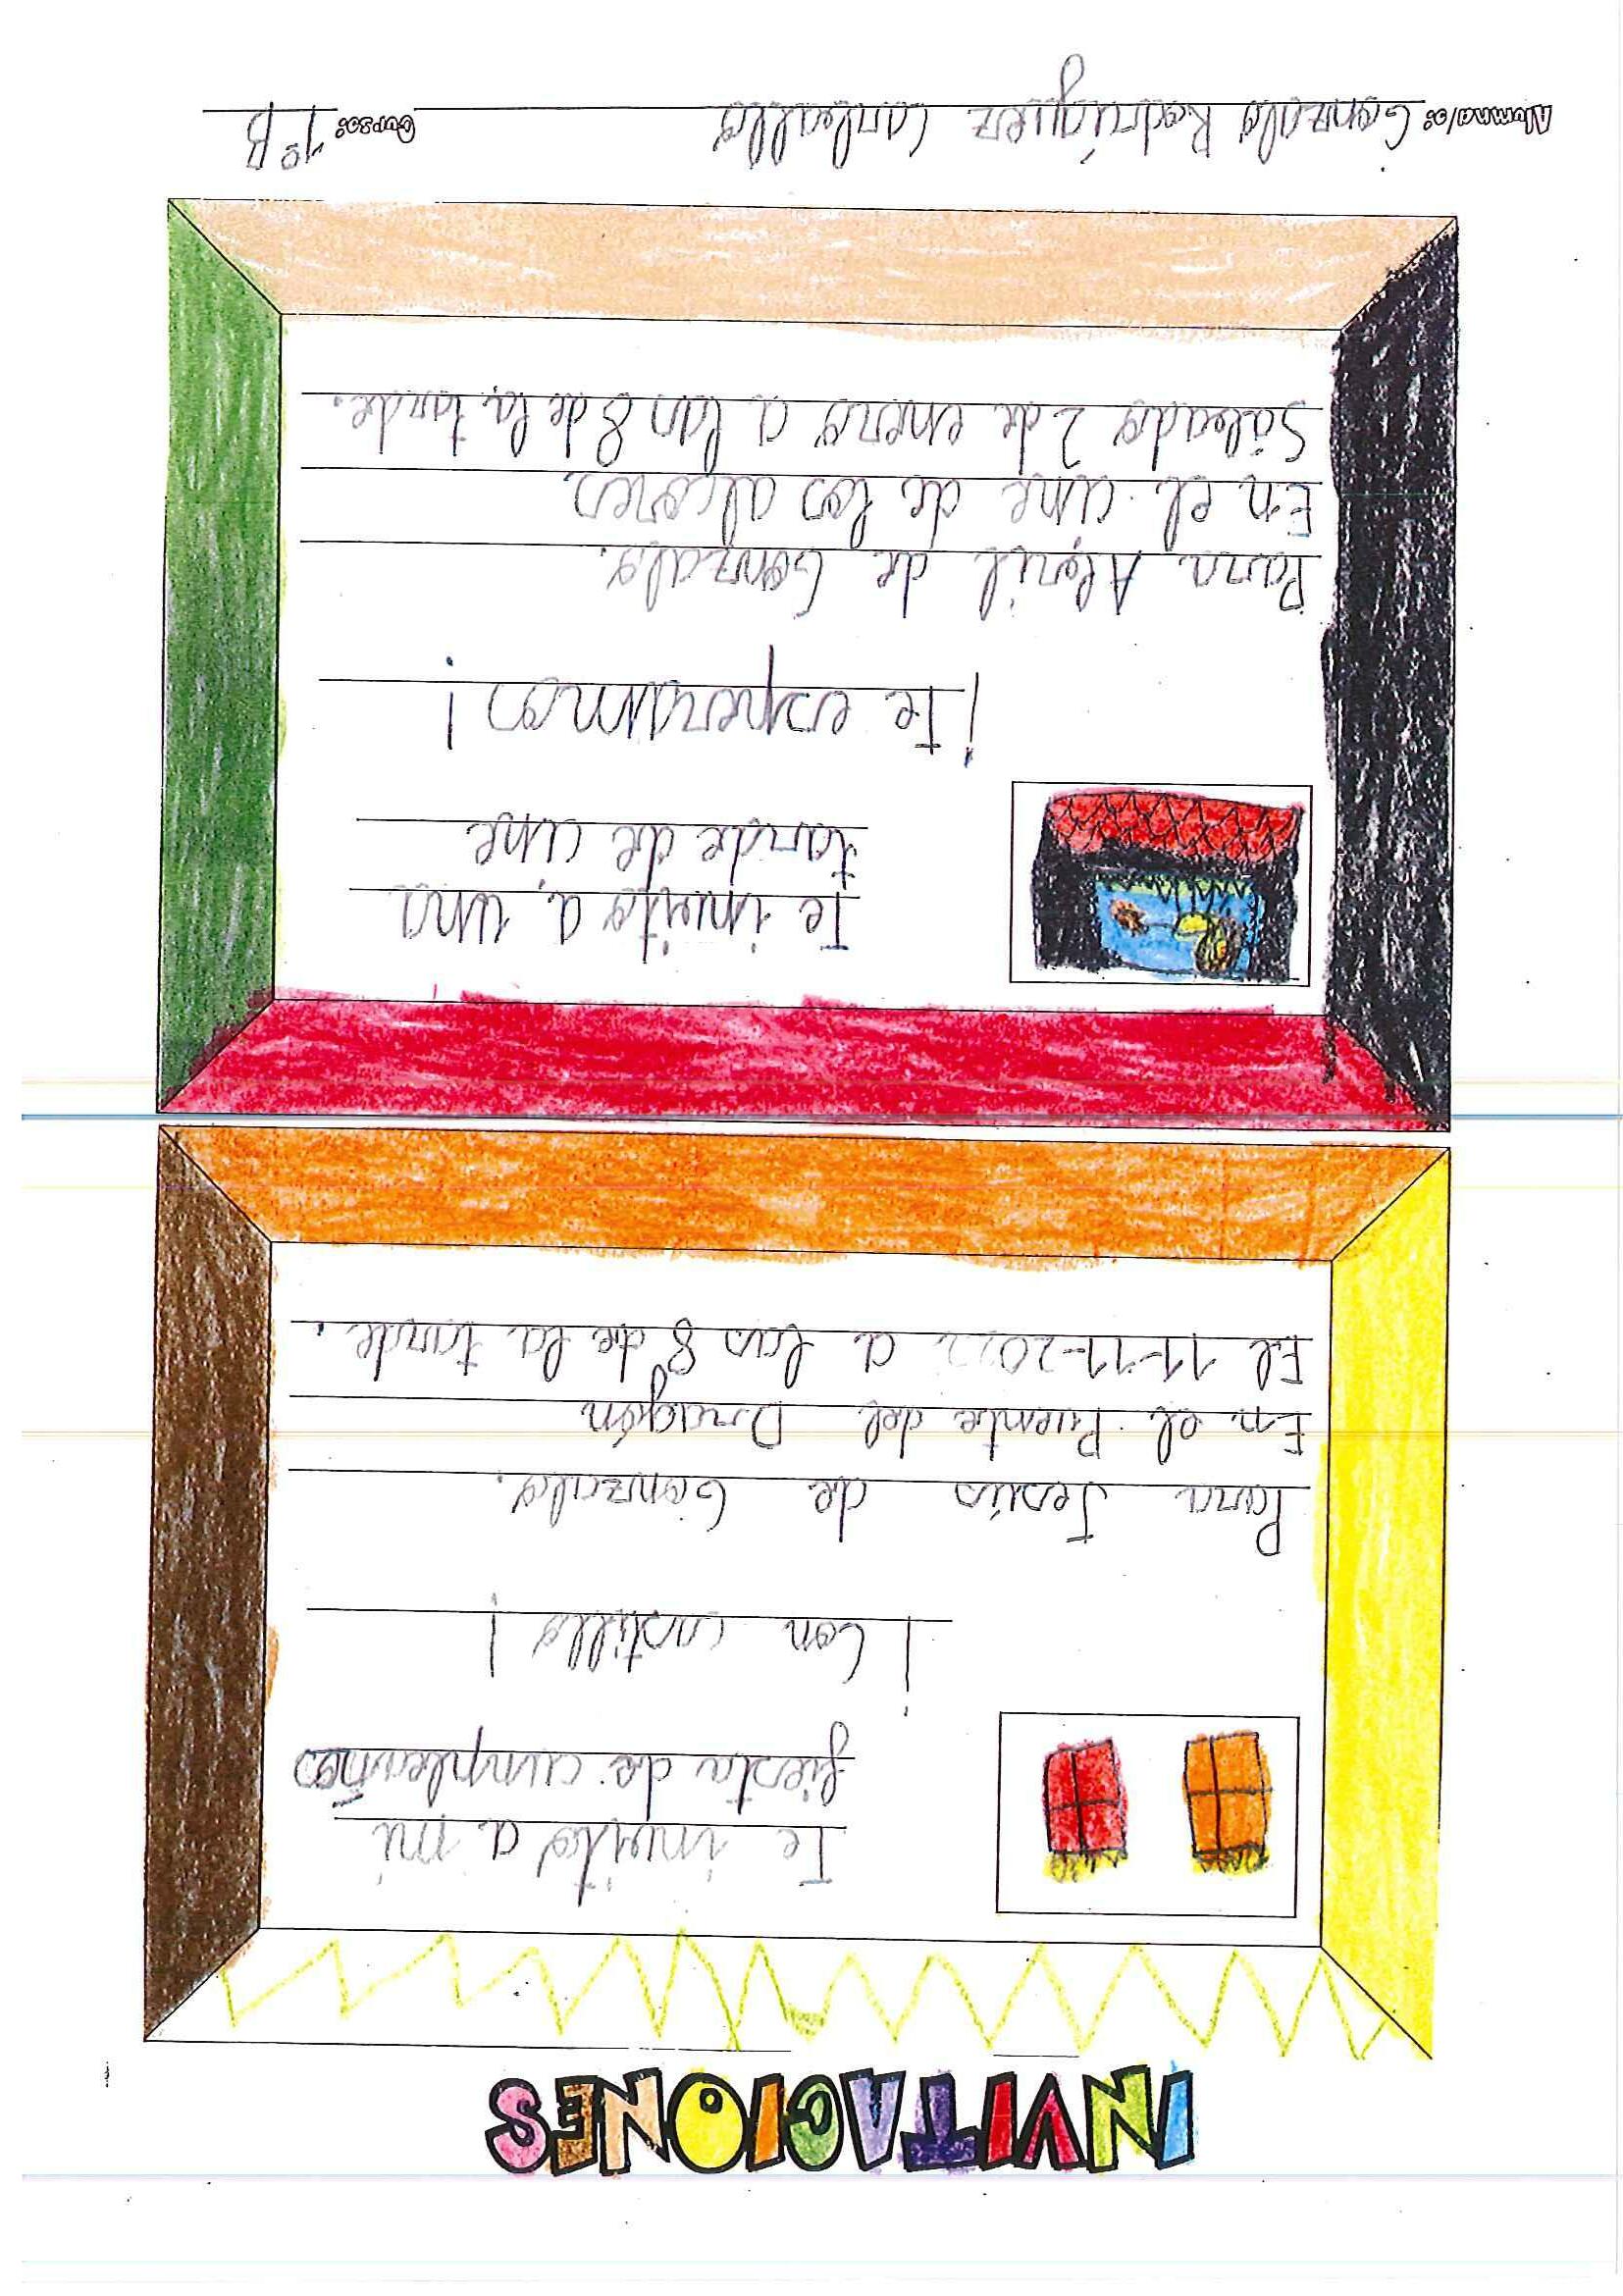 INVITACIONES
Te invito a mi
fiesta de cumpleaños
¡Con castillo!
Para Jesús de Gonzalo.
En el Puente del Dragón
El 11-11-2022 a las 8 de la tarde.
Te invito a una
tarde de cine
¡Te esperamos!
Para Abril de Gonzalo.
En el cine de los alcores
Sábado 2 de enero a las 8 de la tarde.
Alumna/o: Gonzalo Rodríguez Carballo Curso: 1º B